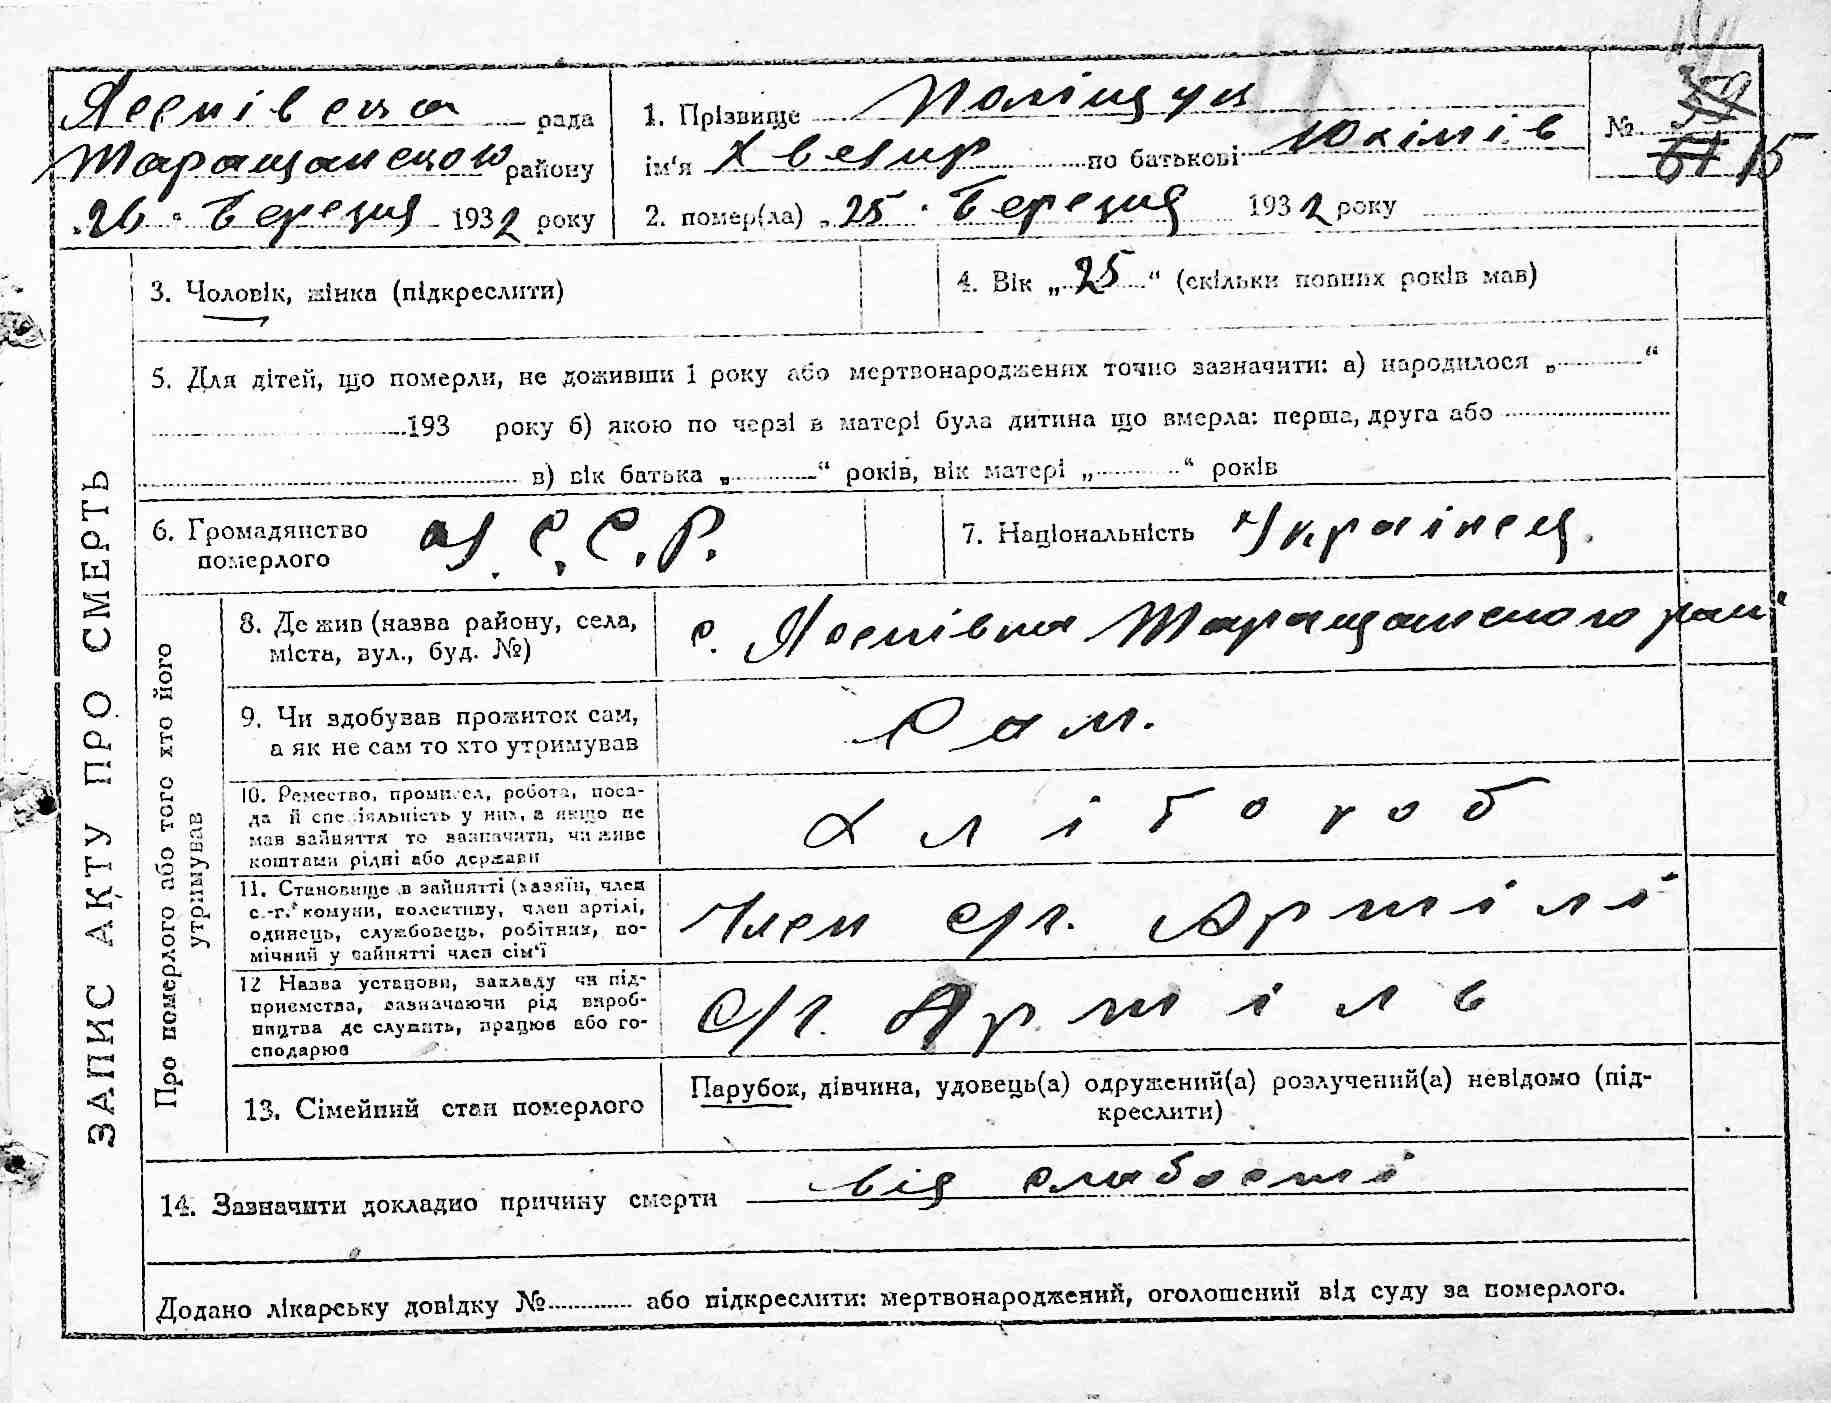 Ясенівська рада
Таращанского району
„26“ Березня 1932 року
1. Прізвище Поліщук
ім'я Хведир по батькові Юхімів
2. помер(ла) „25“ Березня 1932 року
№ 59 61 15
ЗАПИС АКТУ ПРО СМЕРТЬ
3. Чоловік, жінка (підкреслити)
4. Вік „25“ (скільки повних років мав)
5. Для дітей, що померли, не доживши 1 року або мертвонароджених точно зазначити: а) народилося „ “
193 року б) якою по черзі в матері була дитина що вмерла: перша, друга або
в) вік батька „ “ років, вік матері „ “ років
6. Громадянство
померлого
У.С.С.Р.
7. Національність Українец.
Про померлого або того хто його
утримував
8. Де жив (назва району, села,
міста, вул., буд. №)
с. Ясенівка Таращанского рай
9. Чи здобував прожиток сам,
а як не сам то хто утримував
Сам.
10. Ремество, промисел, робота, поса-
да й спеціяльність у них, а якщо не
мав зайняття то зазначити, чи живе
коштами рідні або держави
Хлібороб
11. Становище в зайнятті (хазяїн, член
с.-г. комуни, колективу, член артілі,
одинець, службовець, робітник, по-
мічний у зайнятті член сім'ї
Член с/г. Артілі
12 Назва установи, закладу чи під-
приємства, зазначаючи рід вироб-
ництва де служить, працює або го-
сподарює
С/г. Артіль
13. Сімейний стан померлого
Парубок, дівчина, удовець(а) одружений(а) розлучений(а) невідомо (під-
креслити)
14. Зазначити докладно причину смерти від слабости
Додано лікарську довідку № або підкреслити: мертвонароджений, оголошений від суду за померлого.